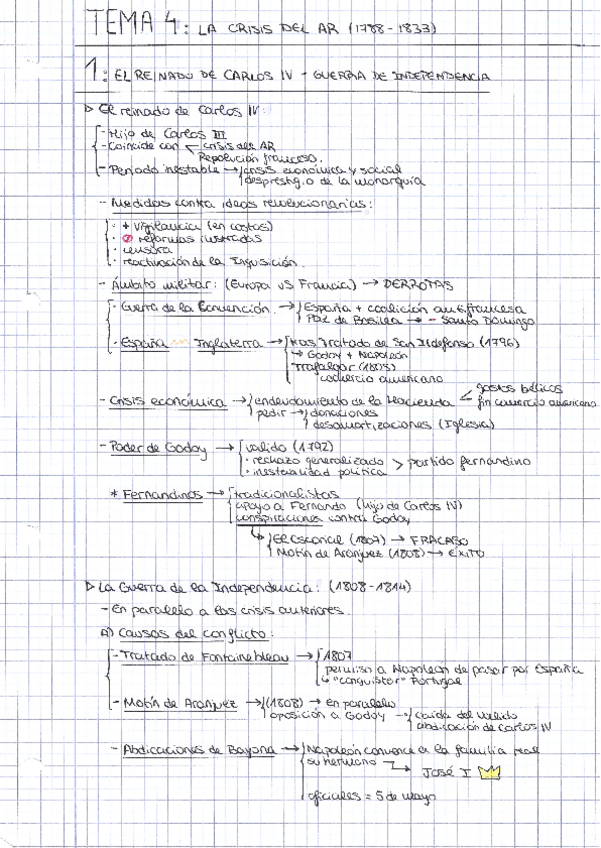 TEMA 4: LA CRISIS DEL AR (1788-1833)
1: EL REINADO DE CARLOS IV - GUERRA DE INDEPENDENCIA
▷ El reinado de Carlos IV:
- Hijo de Carlos III
- Coincide con crisis del AR
Revolución francesa.
- Periodo inestable → crisis económica y social
desprestigio de la monarquía
- Medidas contra ideas revolucionarias:
· + vigilancia (en costas)
· reformas ilustradas
· censura
· reactivación de la Inquisición.
- Ámbito militar: (Europa vs Francia) → DERROTAS
- Guerra de la Convención. → España + coalición antifrancesa
Paz de Basilea → - Santo Domingo
- España Inglaterra → tras Tratado de San Ildefonso (1796)
↳ Godoy + Napoleón
Trafalgar (1805)
comercio americano
- Crisis económica → endeudamiento de la Hacienda < gastos bélicos
fin comercio americano
pedir → donaciones
desamortizaciones (Iglesia)
- Poder de Godoy → valido (1792)
· rechazo generalizado > partido fernandino
· inestabilidad política
* Fernandinos → tradicionalistas
apoyo a Fernando (hijo de Carlos IV)
conspiraciones contra Godoy
↳ El Escorial (1807) → FRACASO
Motín de Aranjuez (1808) → ÉXITO
▷ La Guerra de la Independencia: (1808-1814)
- En paralelo a las crisis anteriores.
A) Causas del conflicto:
- Tratado de Fontainebleau → 1807
permiso a Napoleón de pasar por España
↳ "conquistar" Portugal
- Motín de Aranjuez → (1808) → en paralelo
oposición a Godoy → caída del valido
abdicación de Carlos IV
- Abdicaciones de Bayona → Napoleón convence a la familia real
su hermano → JOSÉ I
oficiales = 5 de mayo